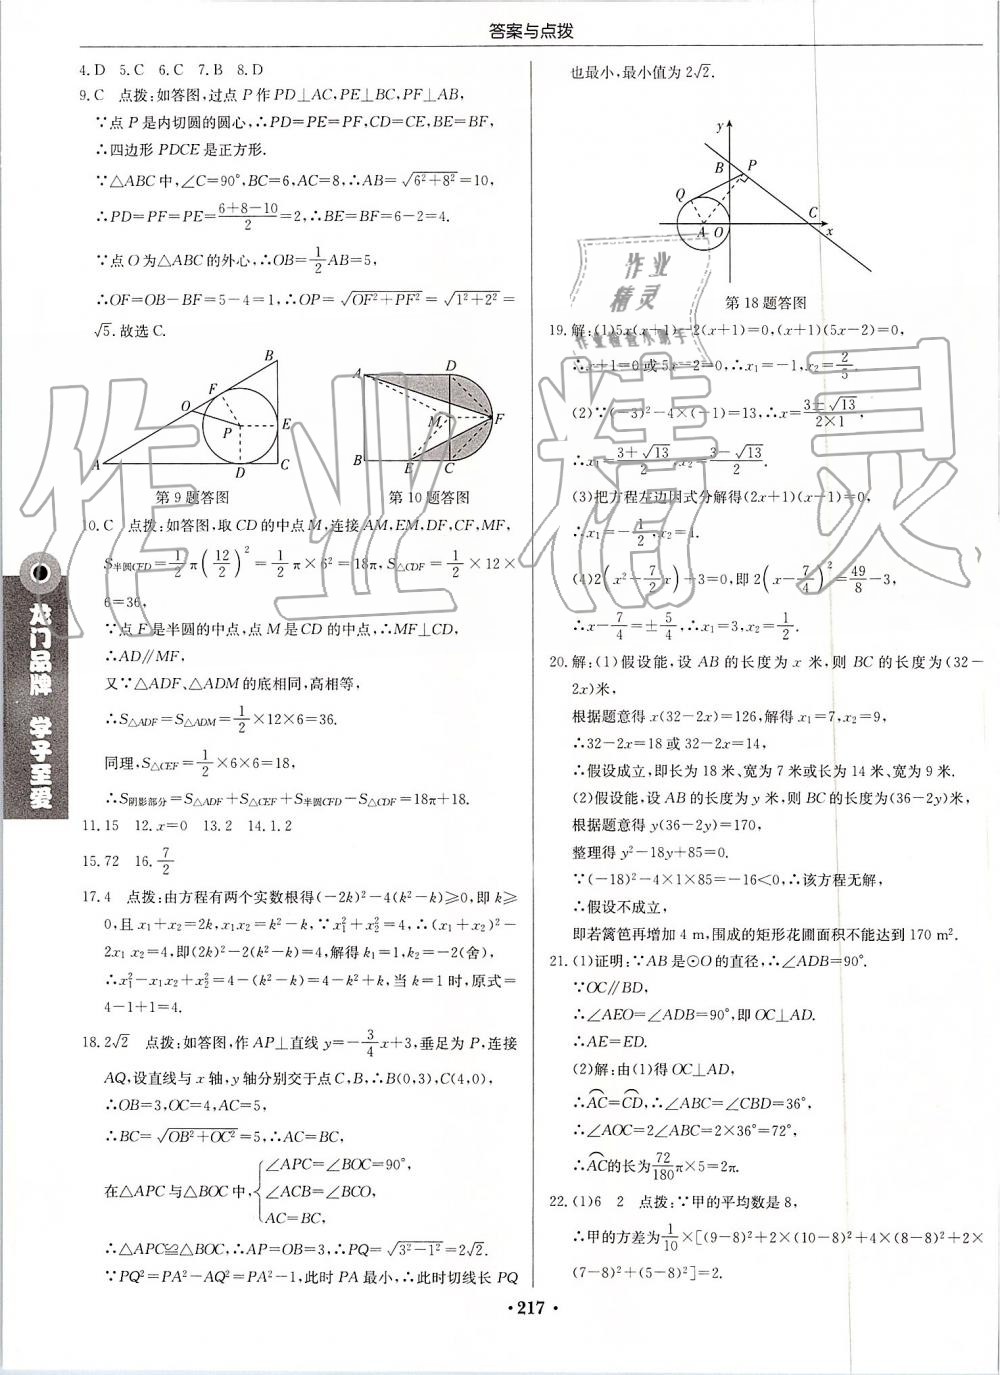 答案与点拨
4.D 5.C 6.C 7.B 8.D
9.C 点拨:如答图,过点 P 作 PD⊥AC,PE⊥BC,PF⊥AB,
∵点 P 是内切圆的圆心,∴PD=PE=PF,CD=CE,BE=BF,
∴四边形 PDCE 是正方形.
∵△ABC 中,∠C=90°,BC=6,AC=8,∴AB=√(6²+8²)=10,
∴PD=PF=PE=(6+8-10)/2=2,∴BE=BF=6-2=4.
∵点 O 为△ABC 的外心,∴OB=1/2AB=5,
∴OF=OB-BF=5-4=1,∴OP=√(OF²+PF²)=√(1²+2²)=
√5.故选 C.
B
F
O
P
E
A
D
C
第 9 题答图
A
D
M
F
B
E
C
第 10 题答图
10.C 点拨:如答图,取 CD 的中点 M,连接 AM,EM,DF,CF,MF,
S半圆CFD=1/2π(12/2)²=1/2π×6²=18π,S△CDF=1/2×12×
6=36,
∵点 F 是半圆的中点,点 M 是 CD 的中点,∴MF⊥CD,
∴AD∥MF,
又∵△ADF、△ADM 的底相同,高相等,
∴S△ADF=S△ADM=1/2×12×6=36.
同理,S△CEF=1/2×6×6=18,
∴S阴影部分=S△ADF+S△CEF+S半圆CFD-S△CDF=18π+18.
11.15 12.x=0 13.2 14.1.2
15.72 16.7/2
17.4 点拨:由方程有两个实数根得(-2k)²-4(k²-k)≥0,即 k≥
0,且 x₁+x₂=2k,x₁x₂=k²-k,∵x₁²+x₂²=4,∴(x₁+x₂)²-
2x₁x₂=4,即(2k)²-2(k²-k)=4,解得 k₁=1,k₂=-2(舍),
∴x₁²-x₁x₂+x₂²=4-(k²-k)=4-k²+k,当 k=1 时,原式=
4-1+1=4.
18.2√2 点拨:如答图,作 AP⊥直线 y=-3/4x+3,垂足为 P,连接
AQ,设直线与 x 轴,y 轴分别交于点 C,B,∴B(0,3),C(4,0),
∴OB=3,OC=4,AC=5,
∴BC=√(OB²+OC²)=5,∴AC=BC,
在△APC 与△BOC 中,{∠APC=∠BOC=90°,
∠ACB=∠BCO,
AC=BC,
∴△APC≌△BOC,∴AP=OB=3,∴PQ=√(3²-1²)=2√2.
∵PQ²=PA²-AQ²=PA²-1,此时 PA 最小,∴此时切线长 PQ
也最小,最小值为 2√2.
y
B
P
Q
A
O
C
x
第 18 题答图
19.解:(1)5x(x+1)-2(x+1)=0,(x+1)(5x-2)=0,
∴x+1=0 或 5x-2=0,∴x₁=-1,x₂=2/5.
(2)∵(-3)²-4×(-1)=13,∴x=(3±√13)/(2×1),
∴x₁=(3+√13)/2,x₂=(3-√13)/2.
(3)把方程左边因式分解得(2x+1)(x-1)=0,
∴x₁=-1/2,x₂=1.
(4)2(x²-7/2x)+3=0,即 2(x-7/4)²=49/8-3,
∴x-7/4=±5/4,∴x₁=3,x₂=1/2.
20.解:(1)假设能,设 AB 的长度为 x 米,则 BC 的长度为(32-
2x)米,
根据题意得 x(32-2x)=126,解得 x₁=7,x₂=9,
∴32-2x=18 或 32-2x=14,
∴假设成立,即长为 18 米、宽为 7 米或长为 14 米、宽为 9 米.
(2)假设能,设 AB 的长度为 y 米,则 BC 的长度为(36-2y)米,
根据题意得 y(36-2y)=170,
整理得 y²-18y+85=0.
∵(-18)²-4×1×85=-16<0,∴该方程无解,
∴假设不成立,
即若篱笆再增加 4 m,围成的矩形花圃面积不能达到 170 m².
21.(1)证明:∵AB 是⊙O 的直径,∴∠ADB=90°.
∵OC∥BD,
∴∠AEO=∠ADB=90°,即 OC⊥AD.
∴AE=ED.
(2)解:由(1)得 OC⊥AD,
∴⌒AC=⌒CD,∴∠ABC=∠CBD=36°,
∴∠AOC=2∠ABC=2×36°=72°,
∴⌒AC的长为72/180π×5=2π.
22.(1)6 2 点拨:∵甲的平均数是 8,
∴甲的方差为1/10×[(9-8)²+2×(10-8)²+4×(8-8)²+2×
(7-8)²+(5-8)²]=2.
龙门品牌 学子至爱
作业精灵
作业精灵
作业检查小助手
·217·